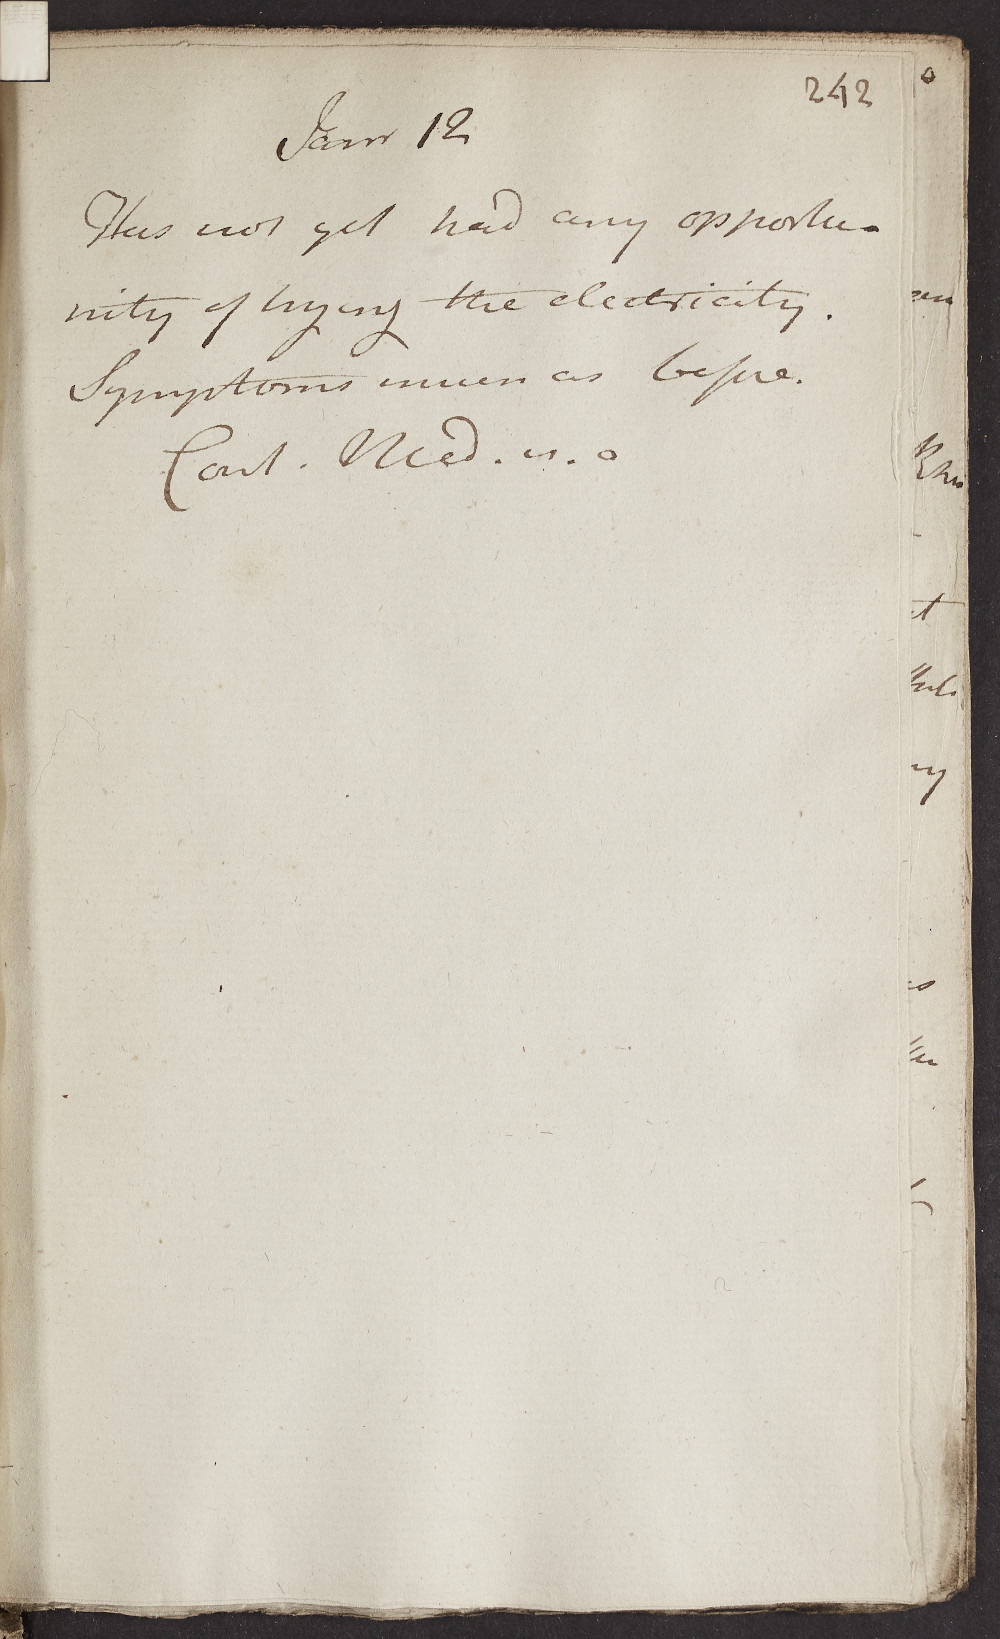 242
Janr 12
Has not yet had any opportu-
nity of trying the electricity.
Symptoms much as before.
Cont. Med. u.